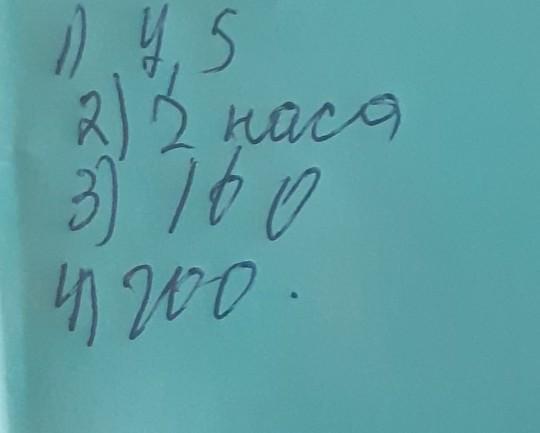 1) 4,5
2) 2 часа
3) 160
4) 200.